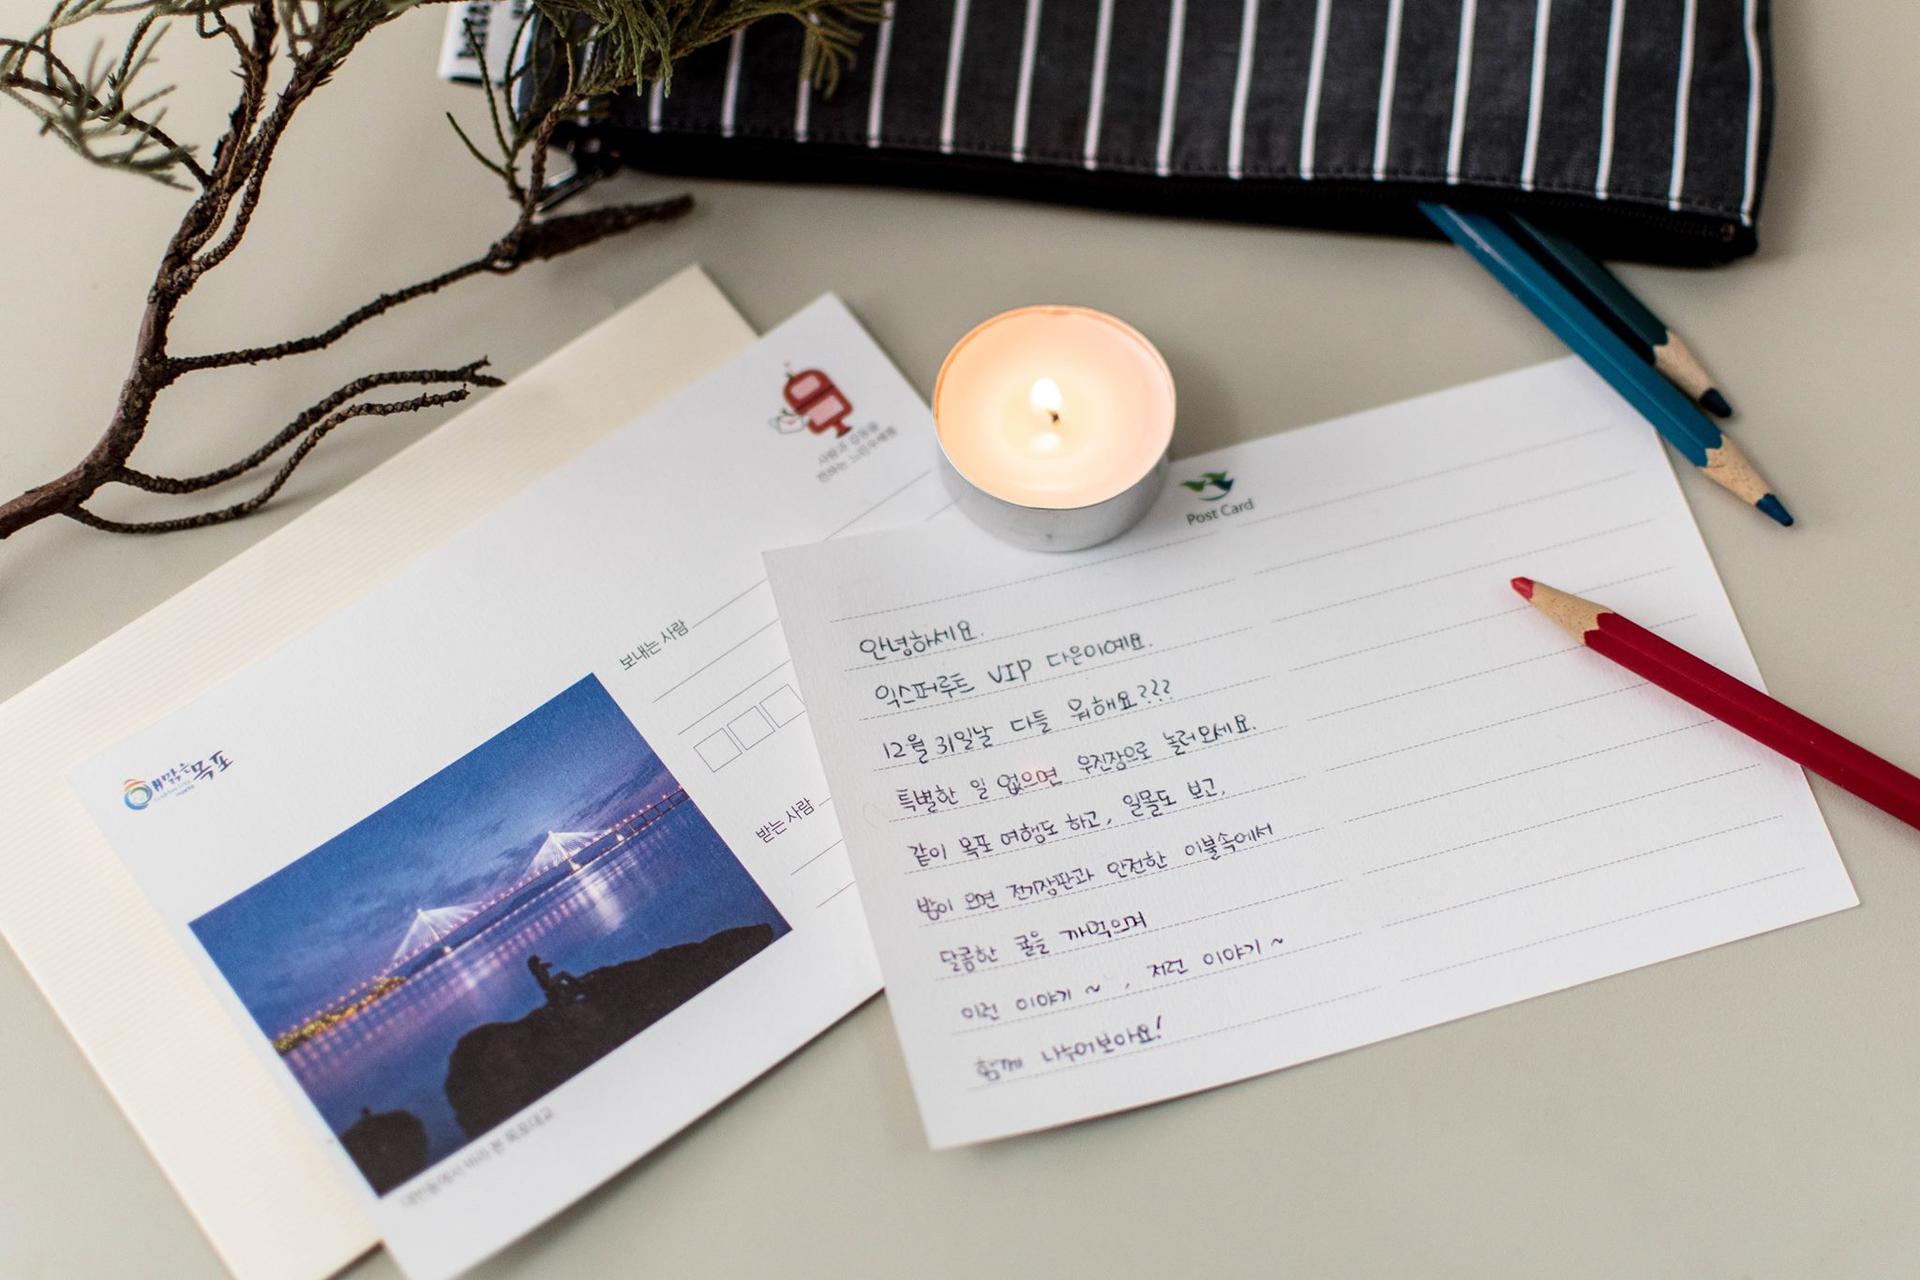 사랑과 감동을
전하는 느린우체통
보내는 사람
받는 사람
맑은 목포
대반동에서 바라 본 목포대교
Post Card
안녕하세요.
익스퍼루트 VIP 다은이예요.
12월 31일날 다들 뭐해요???
특별한 일 없으면 우진장으로 놀러오세요.
같이 목포 여행도 하고, 일몰도 보고,
밤이 오면 전기장판과 안전한 이불속에서
달콤한 귤을 까먹으며
이런 이야기~, 저런 이야기~
함께 나누어보아요!